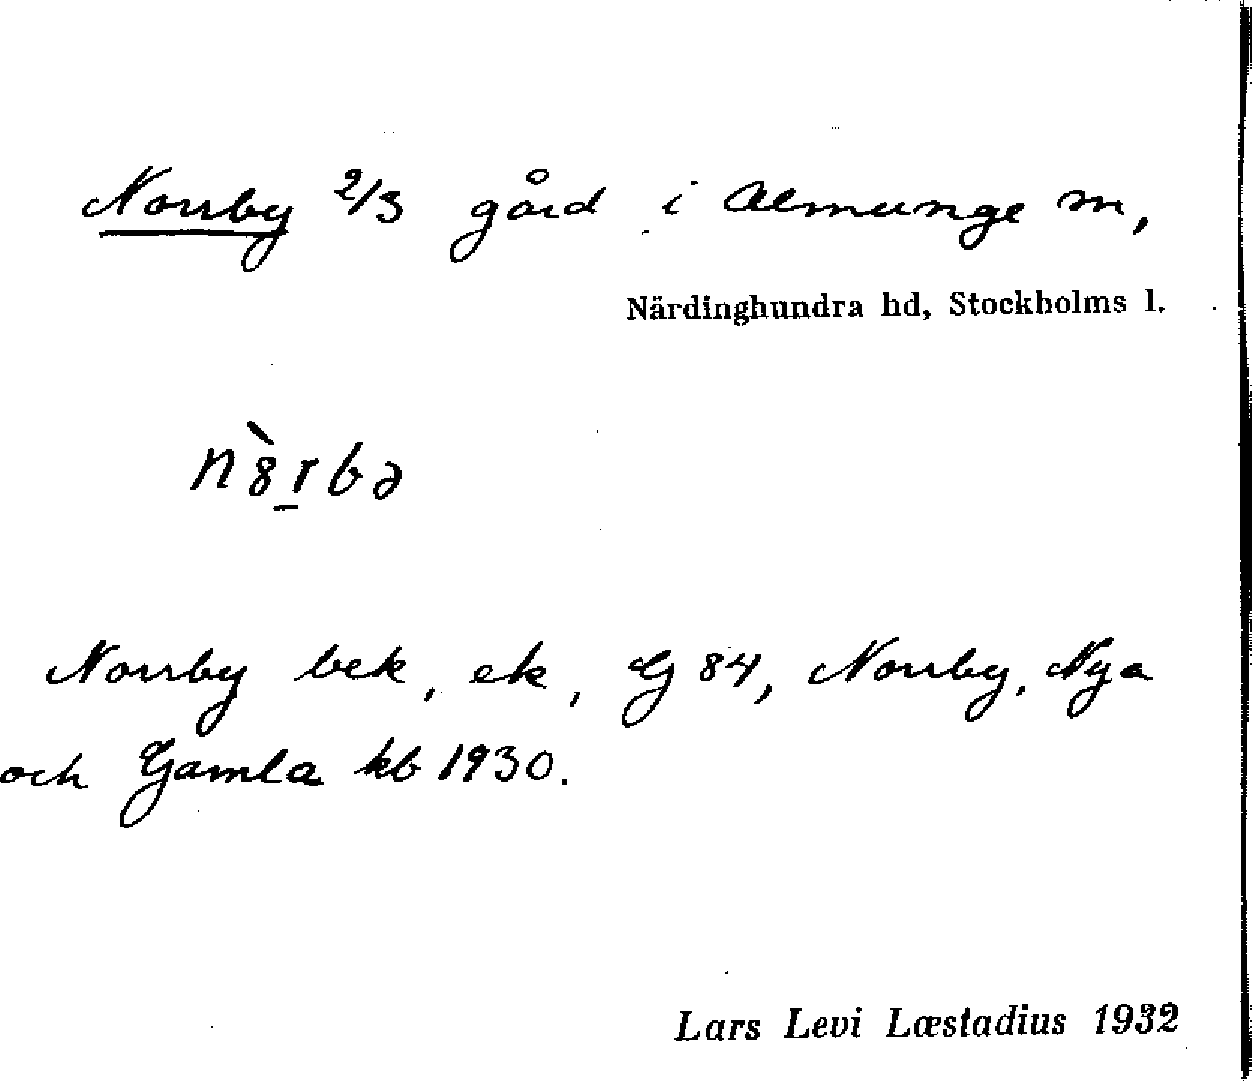 Norrby 2/3 gård i Almunge sn,
Närdinghundra hd, Stockholms l.
n8̀r̠bə
Norrby bek, ek, G 84, Norrby, Nya
och Gamla kb 1930.
Lars Levi Læstadius 1932